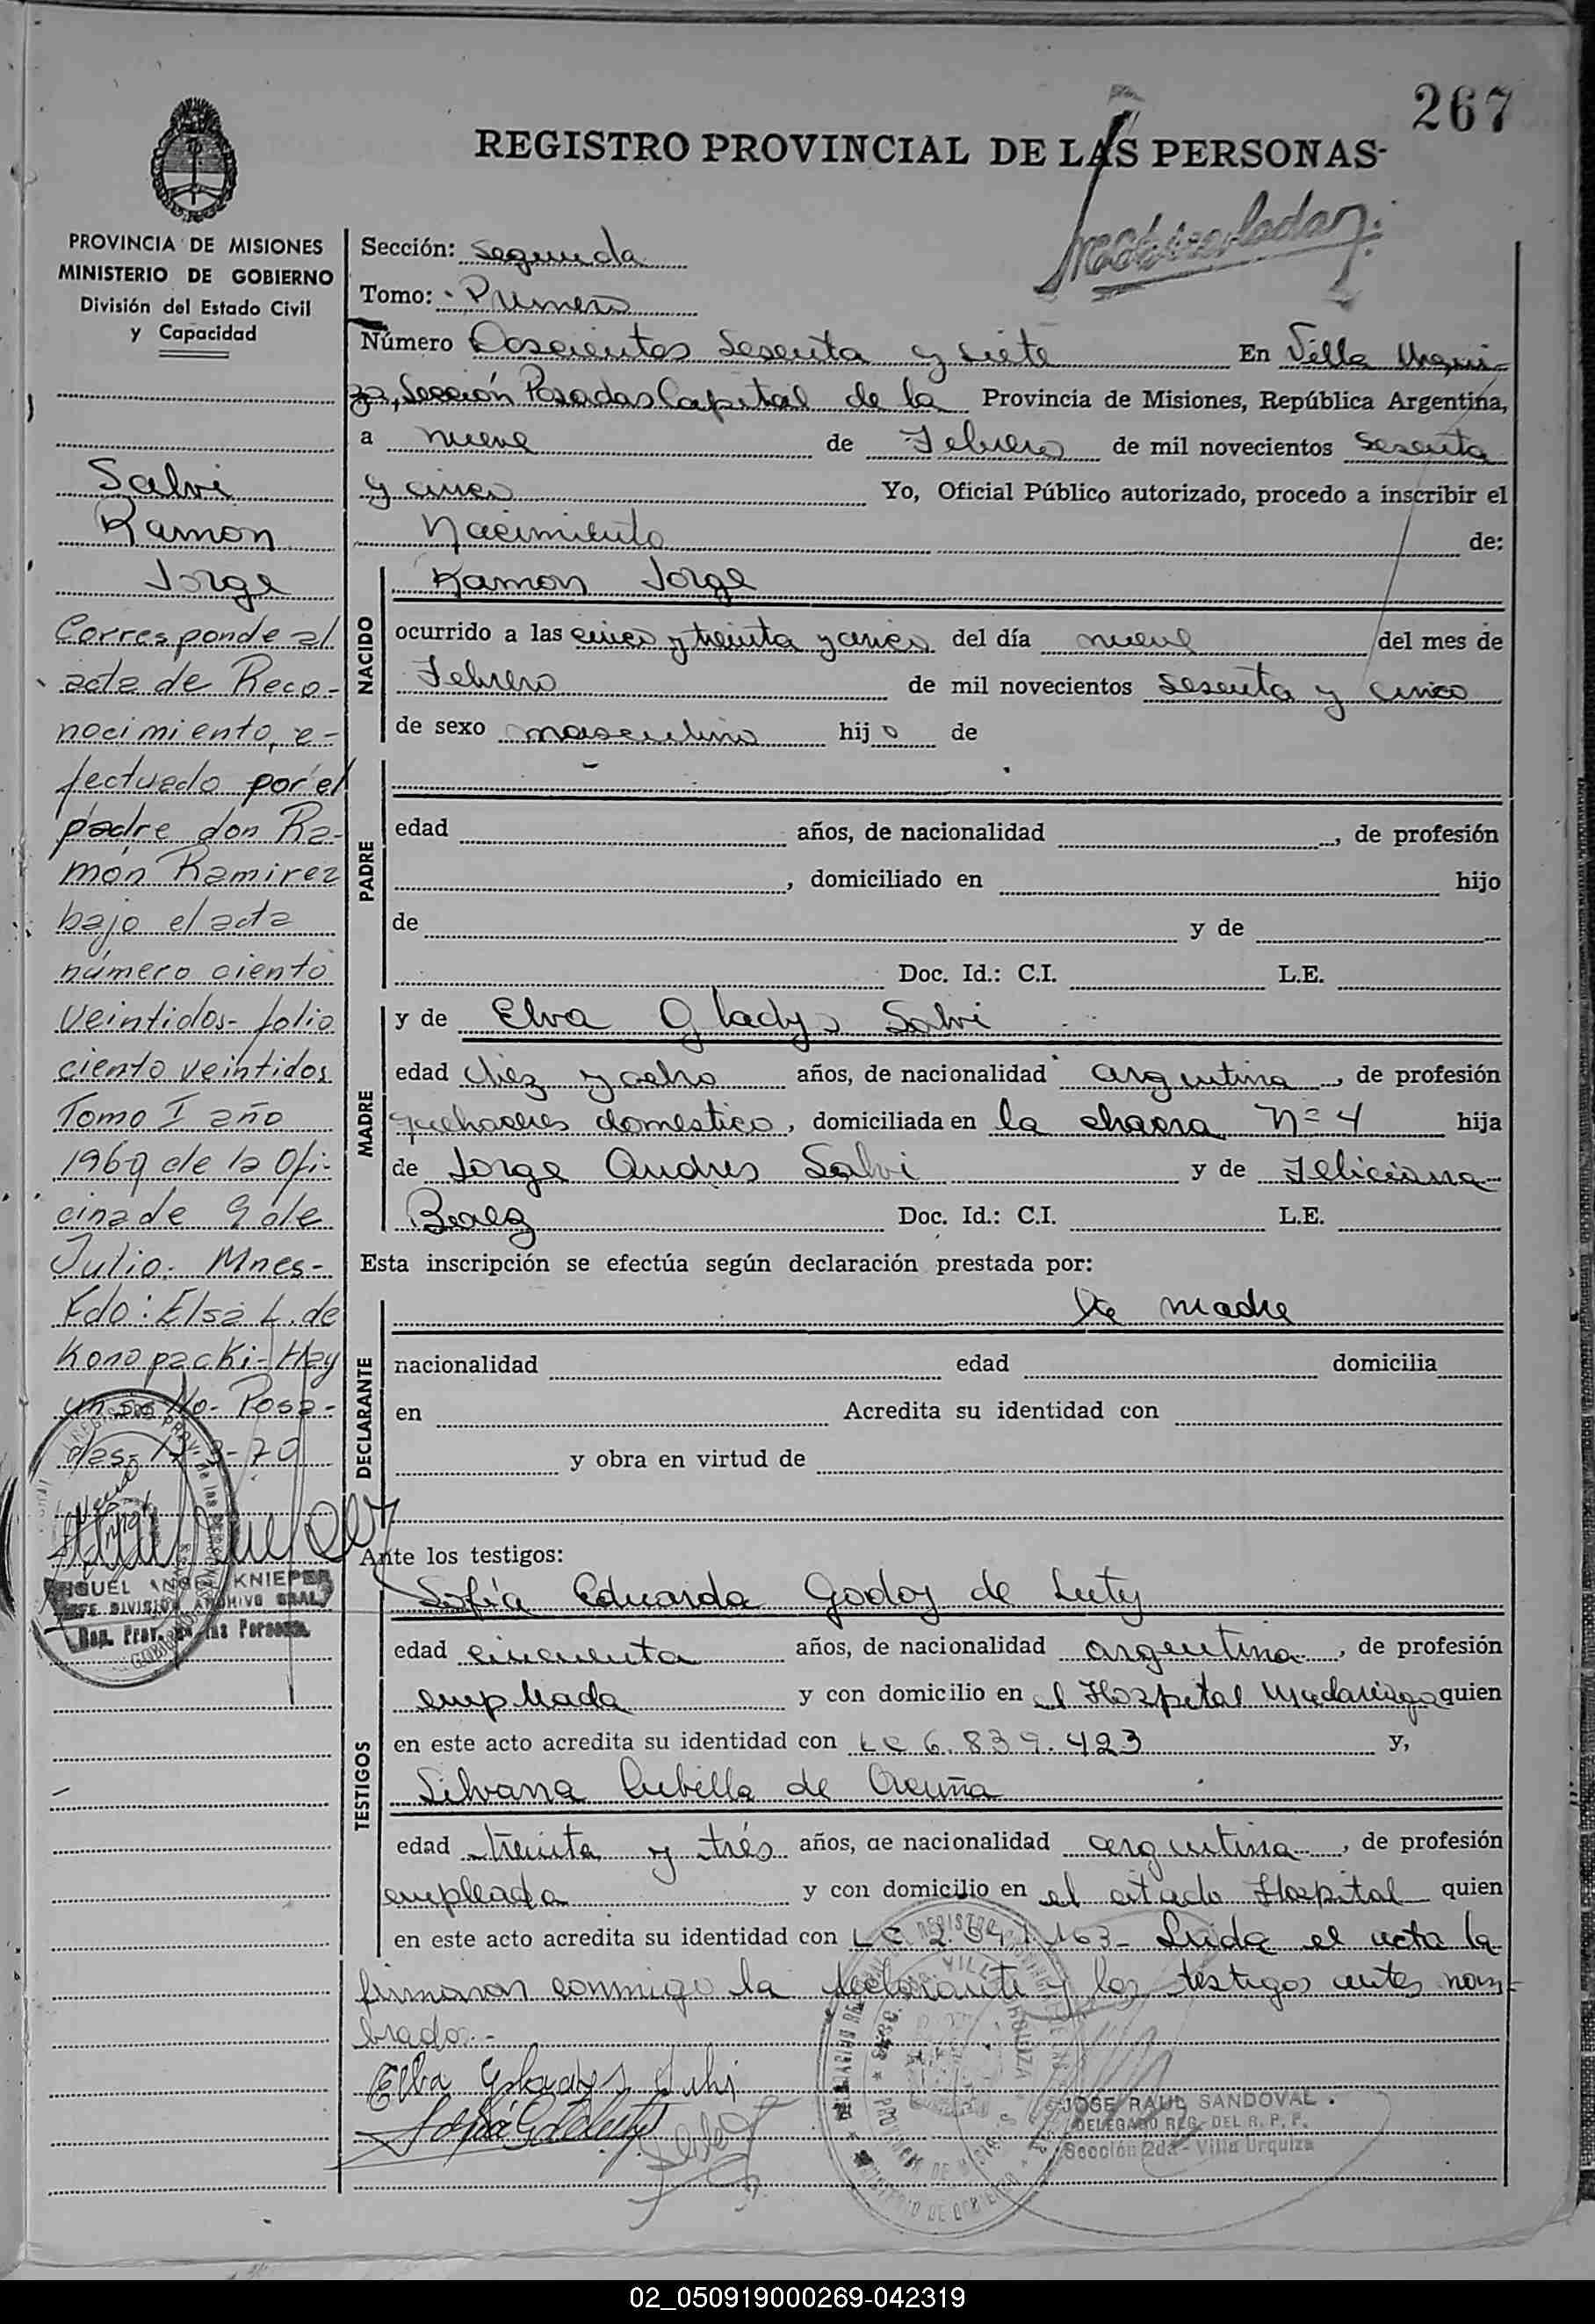 267
REGISTRO PROVINCIAL DE LAS PERSONAS
PROVINCIA DE MISIONES
MINISTERIO DE GOBIERNO
División del Estado Civil
y Capacidad
Salvi
Ramon
Jorge
Corresponde al
acta de Reco-
nocimiento, e-
fectuado por el
padre don Ra-
món Ramirez
bajo el acta
número ciento
veintidos- folio
ciento veintidos
Tomo I año
1969 de la Ofi-
cina de 9 de
Julio. Mnes-
Fdo: Elsa L. de
Konopacki- Hay
un sello- Posa-
das-
MIGUEL ANGEL KNIEPER
JEFE DIVISION ARCHIVO GRAL.
Reg. Prov. de las Personas
Sección: Segunda
Tomo: Primero
Número Doscientos sesenta y siete En Villa Urqui-
za, Sección Posadas Capital de la Provincia de Misiones, República Argentina,
a nueve de Febrero de mil novecientos sesenta
y cinco Yo, Oficial Público autorizado, procedo a inscribir el
Nacimiento de:
NACIDO
Ramon Jorge
ocurrido a las cinco y treinta y cinco del día nueve del mes de
Febrero de mil novecientos sesenta y cinco
de sexo masculino hijo de
PADRE
edad años, de nacionalidad , de profesión
, domiciliado en hijo
de y de
Doc. Id.: C.I. L.E.
MADRE
y de Elva Gladys Salvi
edad diez y ocho años, de nacionalidad argentina, de profesión
quehaceres domestico, domiciliada en la chacra Nº 4 hija
de Jorge Andres Salvi y de Feliciana
Baez Doc. Id.: C.I. L.E.
Esta inscripción se efectúa según declaración prestada por:
DECLARANTE
la madre
nacionalidad edad domicilia
en Acredita su identidad con
y obra en virtud de
Ante los testigos:
TESTIGOS
Sofía Eduarda Godoy de Luty
edad cincuenta años, de nacionalidad argentina, de profesión
empleada y con domicilio en el Hospital Madariaga quien
en este acto acredita su identidad con LC 6.839.423 y,
Silvana Cubilla de Acuña
edad treinta y trés años, de nacionalidad argentina, de profesión
empleada y con domicilio en el citado Hospital quien
en este acto acredita su identidad con LC 163- Leida el acta la
firmaron conmigo la declarante y los testigos antes nom-
brados.-
Elba Gladys Salvi
JOSE RAUL SANDOVAL
DELEGADO REG. DEL R. P. P.
Sección 2da - Villa Urquiza
02_050919000269-042319